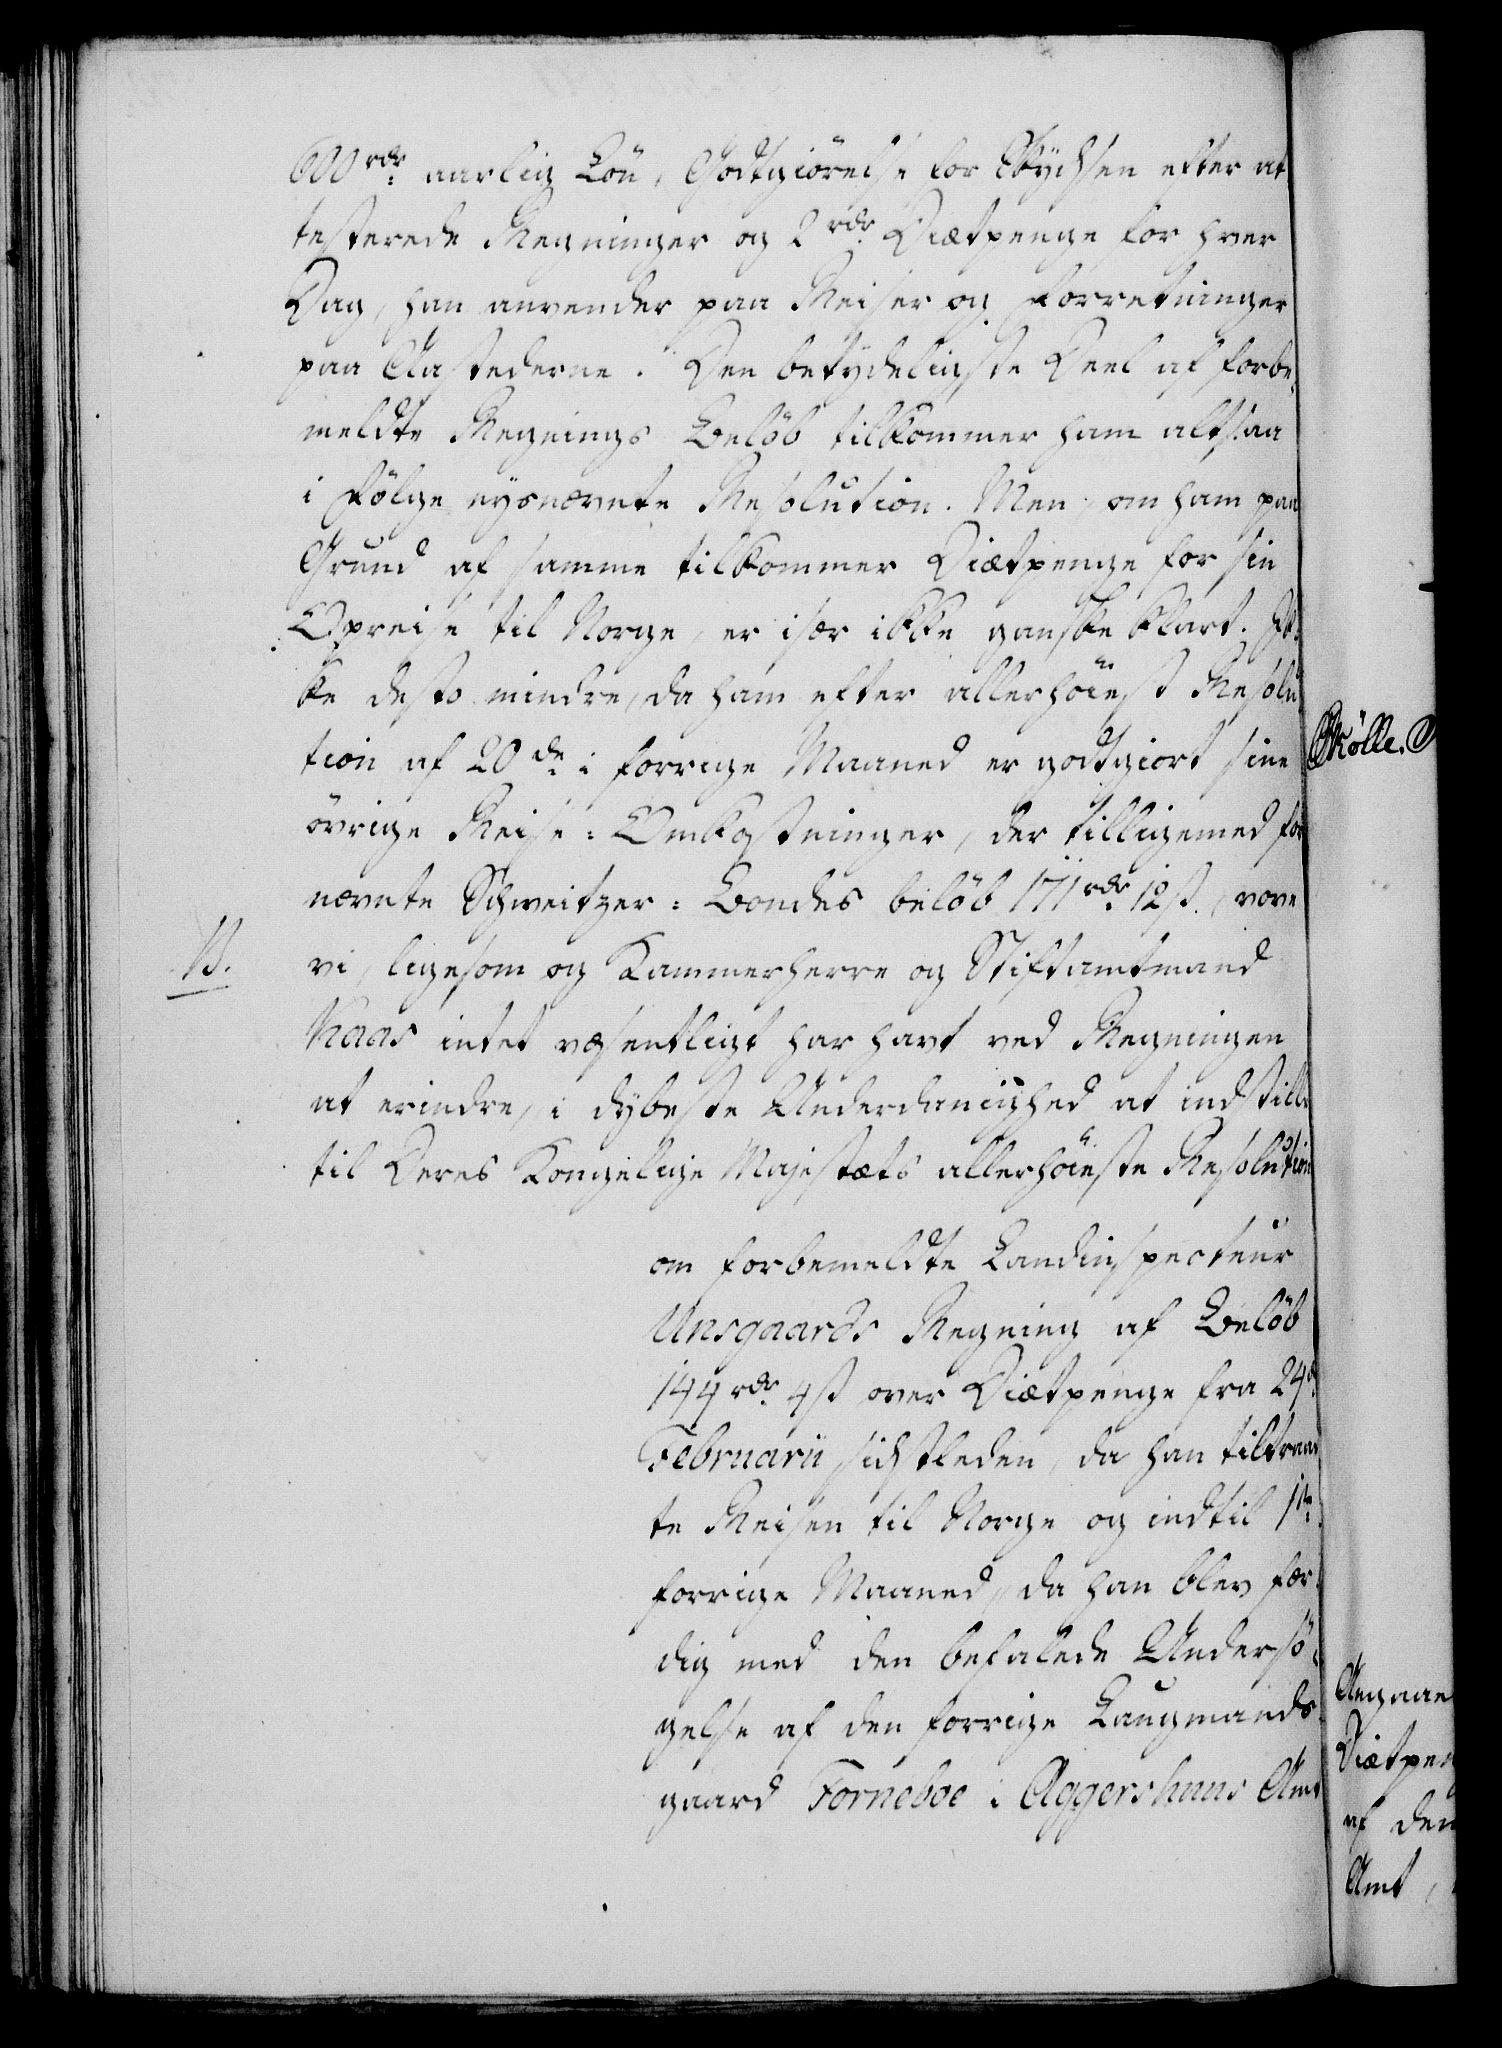 600 rdr. aarlig Løn, Godtgiörelse for Skydsen efter at
testerede Regninger og 2 rdr. Diætpenge for hver
Dag, han anvender paa Reiser og Forretninger
paa Aastederne. Den betydeligste Deel af forbe-
meldte Regnings Belöb tilkommer ham altsaa
i Fölge nysnævnte Resolution. Men, om ham paa
Grund af samme tilkommer Diætpenge for sin
Opreise til Norge, er især ikke ganske klart. Ik-
ke desto mindre, da ham efter allerhöiest Resolu
tion af 20de i forrige Maaned er godtgiort sine
övrige Reise-Omkostninger, der tilligemed for
nævnte Schweitzer-Bondes belöb 171 rdr. 12 ß., vove
13.
vi, ligesom og Kammerherre og Stiftamtmand
Kaas intet væsentligt har havt ved Regningen
at erindre, i dybeste Underdanighed at indstille
til Deres Kongelige Majestæts allerhöieste Resolution
om forbemeldte Landinspecteur
Unsgaards Regning af Belöb
144 rdr. 4 ß over Diætpenge fra 24de
Februarii sidstleden, da han tiltraad
te Reisen til Norge og indtil 1ste
forrige Maaned, da han blev fær-
dig med den befalede Undersö-
gelse af den forrige Laugmands-
gaard Forneboe i Aggershuus Amt
Mölle
Angaae
Diætpen
af den
Amt,